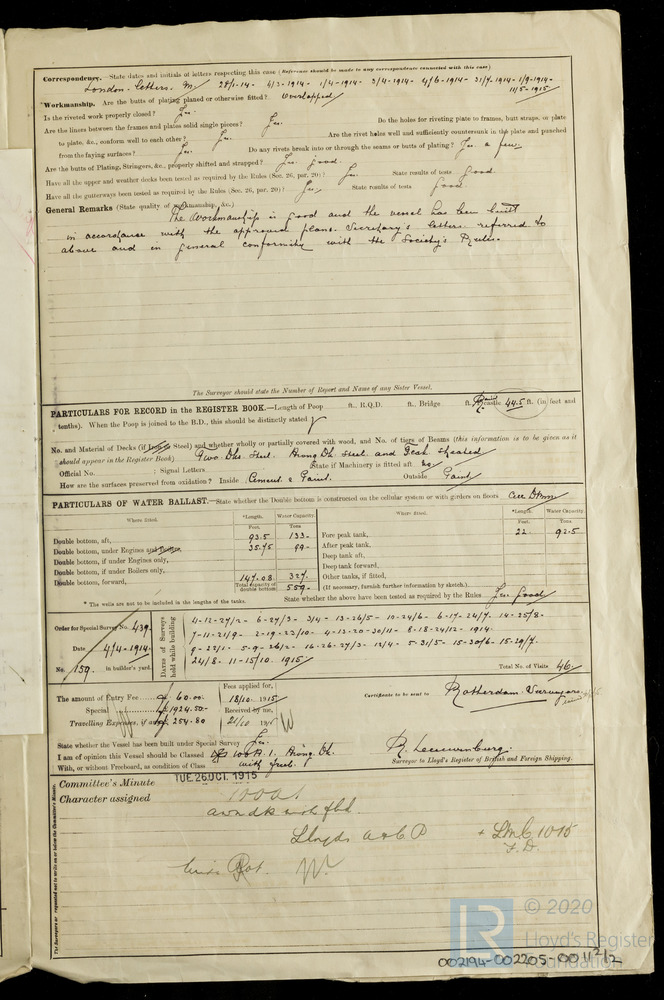 Correspondence.—State dates and initials of letters respecting this case (Reference should be made to any correspondence connected with this case)
London. Letters. M/ 28/1-14- 4/3-1914- 1/4-1914- 3/4-1914- 4/6-1914- 31/7-1914- 1/9-1914-
11/5-1915
Workmanship. Are the butts of plating planed or otherwise fitted? Overlapped
Is the riveted work properly closed? Yes.
Are the liners between the frames and plates solid single pieces? Yes. Do the holes for riveting plate to frames, butt straps, or plate
to plate, &c., conform well to each other? Yes. Are the rivet holes well and sufficiently countersunk in the plate and punched
from the faying surfaces? Yes. Do any rivets break into or through the seams or butts of plating? Yes. a few
Are the butts of Plating, Stringers, &c., properly shifted and strapped? Yes. Good.
Have all the upper and weather decks been tested as required by the Rules (Sec. 26, par. 20)? Yes. State results of tests Good.
Have all the gutterways been tested as required by the Rules (Sec. 26, par. 20)? Yes. State results of tests Good.
General Remarks (State quality of workmanship, &c.)
The Workmanship is good and the vessel has been built
in accordance with the approved plans. Secretary's letters referred to
above and in general conformity with the Society's Rules.
The Surveyor should state the Number of Report and Name of any Sister Vessel.
PARTICULARS FOR RECORD in the REGISTER BOOK.—Length of Poop ft. R.Q.D. ft. Bridge ft. Forecastle 44.5 ft. (in feet and
tenths). When the Poop is joined to the B.D., this should be distinctly stated
No. and Material of Decks (if Iron or Steel) and whether wholly or partially covered with wood, and No. of tiers of Beams (this information is to be given as it
should appear in the Register Book) Two Dks. Steel. Awng Dk Steel. and Teak Sheated
Official No. ; Signal Letters State if Machinery is fitted aft No
How are the surfaces preserved from oxidation? Inside Cement & Paint. Outside Paint
PARTICULARS OF WATER BALLAST.—State whether the Double bottom is constructed on the cellular system or with girders on floors Cell D Btm
Where fitted. *Length. Water Capacity. Where fitted. *Length. Water Capacity.
Feet. Tons Feet. Tons
Double bottom, aft, 93.5 133- Fore peak tank, 22 92.5
Double bottom, under Engines and Boilers, 35.75 99- After peak tank,
Double bottom, if under Engines only, Deep tank aft,
Double bottom, if under Boilers only, Deep tank forward,
Double bottom, forward, 147.08 327. Other tanks, if fitted,
Total capacity of double bottom 559- (If necessary, furnish further information by sketch.)
* The wells are not to be included in the lengths of the tanks. State whether the above have been tested as required by the Rules Yes. Good
Order for Special Survey No. 439.
Date 4/4-1914.
No. 159. in builder's yard.
Dates of Surveys held while building
4-12-27/2- 6-27/3- 3/4- 13-26/5- 10-24/6- 6-17-24/7- 14-25/8-
7-11-21/9- 2-19-22/10- 4-13-20-30/11- 8-18-24/12- 1914.
9-22/1- 5-9-26/2- 16-26-27/3- 12/4- 5-31/5- 15-30/6- 15-29/7.
24/8- 11-15/10. 1915
Total No. of Visits 46
The amount of Entry Fee £ 60.00. Fees applied for, 18/10 1915
Special £ 1924.50- Received by me, 21/10 1915
Travelling Expenses, if any £ 254.80
Certificate to be sent to Rotterdam. Surveyors
State whether the Vessel has been built under Special Survey Yes.
I am of opinion this Vessel should be Classed 100 A.1. Awng. Dk.
With, or without Freeboard, as condition of Class with freeb.
R. Leeuwenburg.
Surveyor to Lloyd's Register of British and Foreign Shipping.
Committee's Minute TUE. 26 OCT. 1915
Character assigned 100A1
awn dk with fbd.
Lloyds A & C P + LMC 10.15
F.D.
Rot.
The Surveyors are requested not to write on or below the Committee's Minute.
LR
© 2020
Lloyd's Register
Foundation
002194-002205-0011 2/2